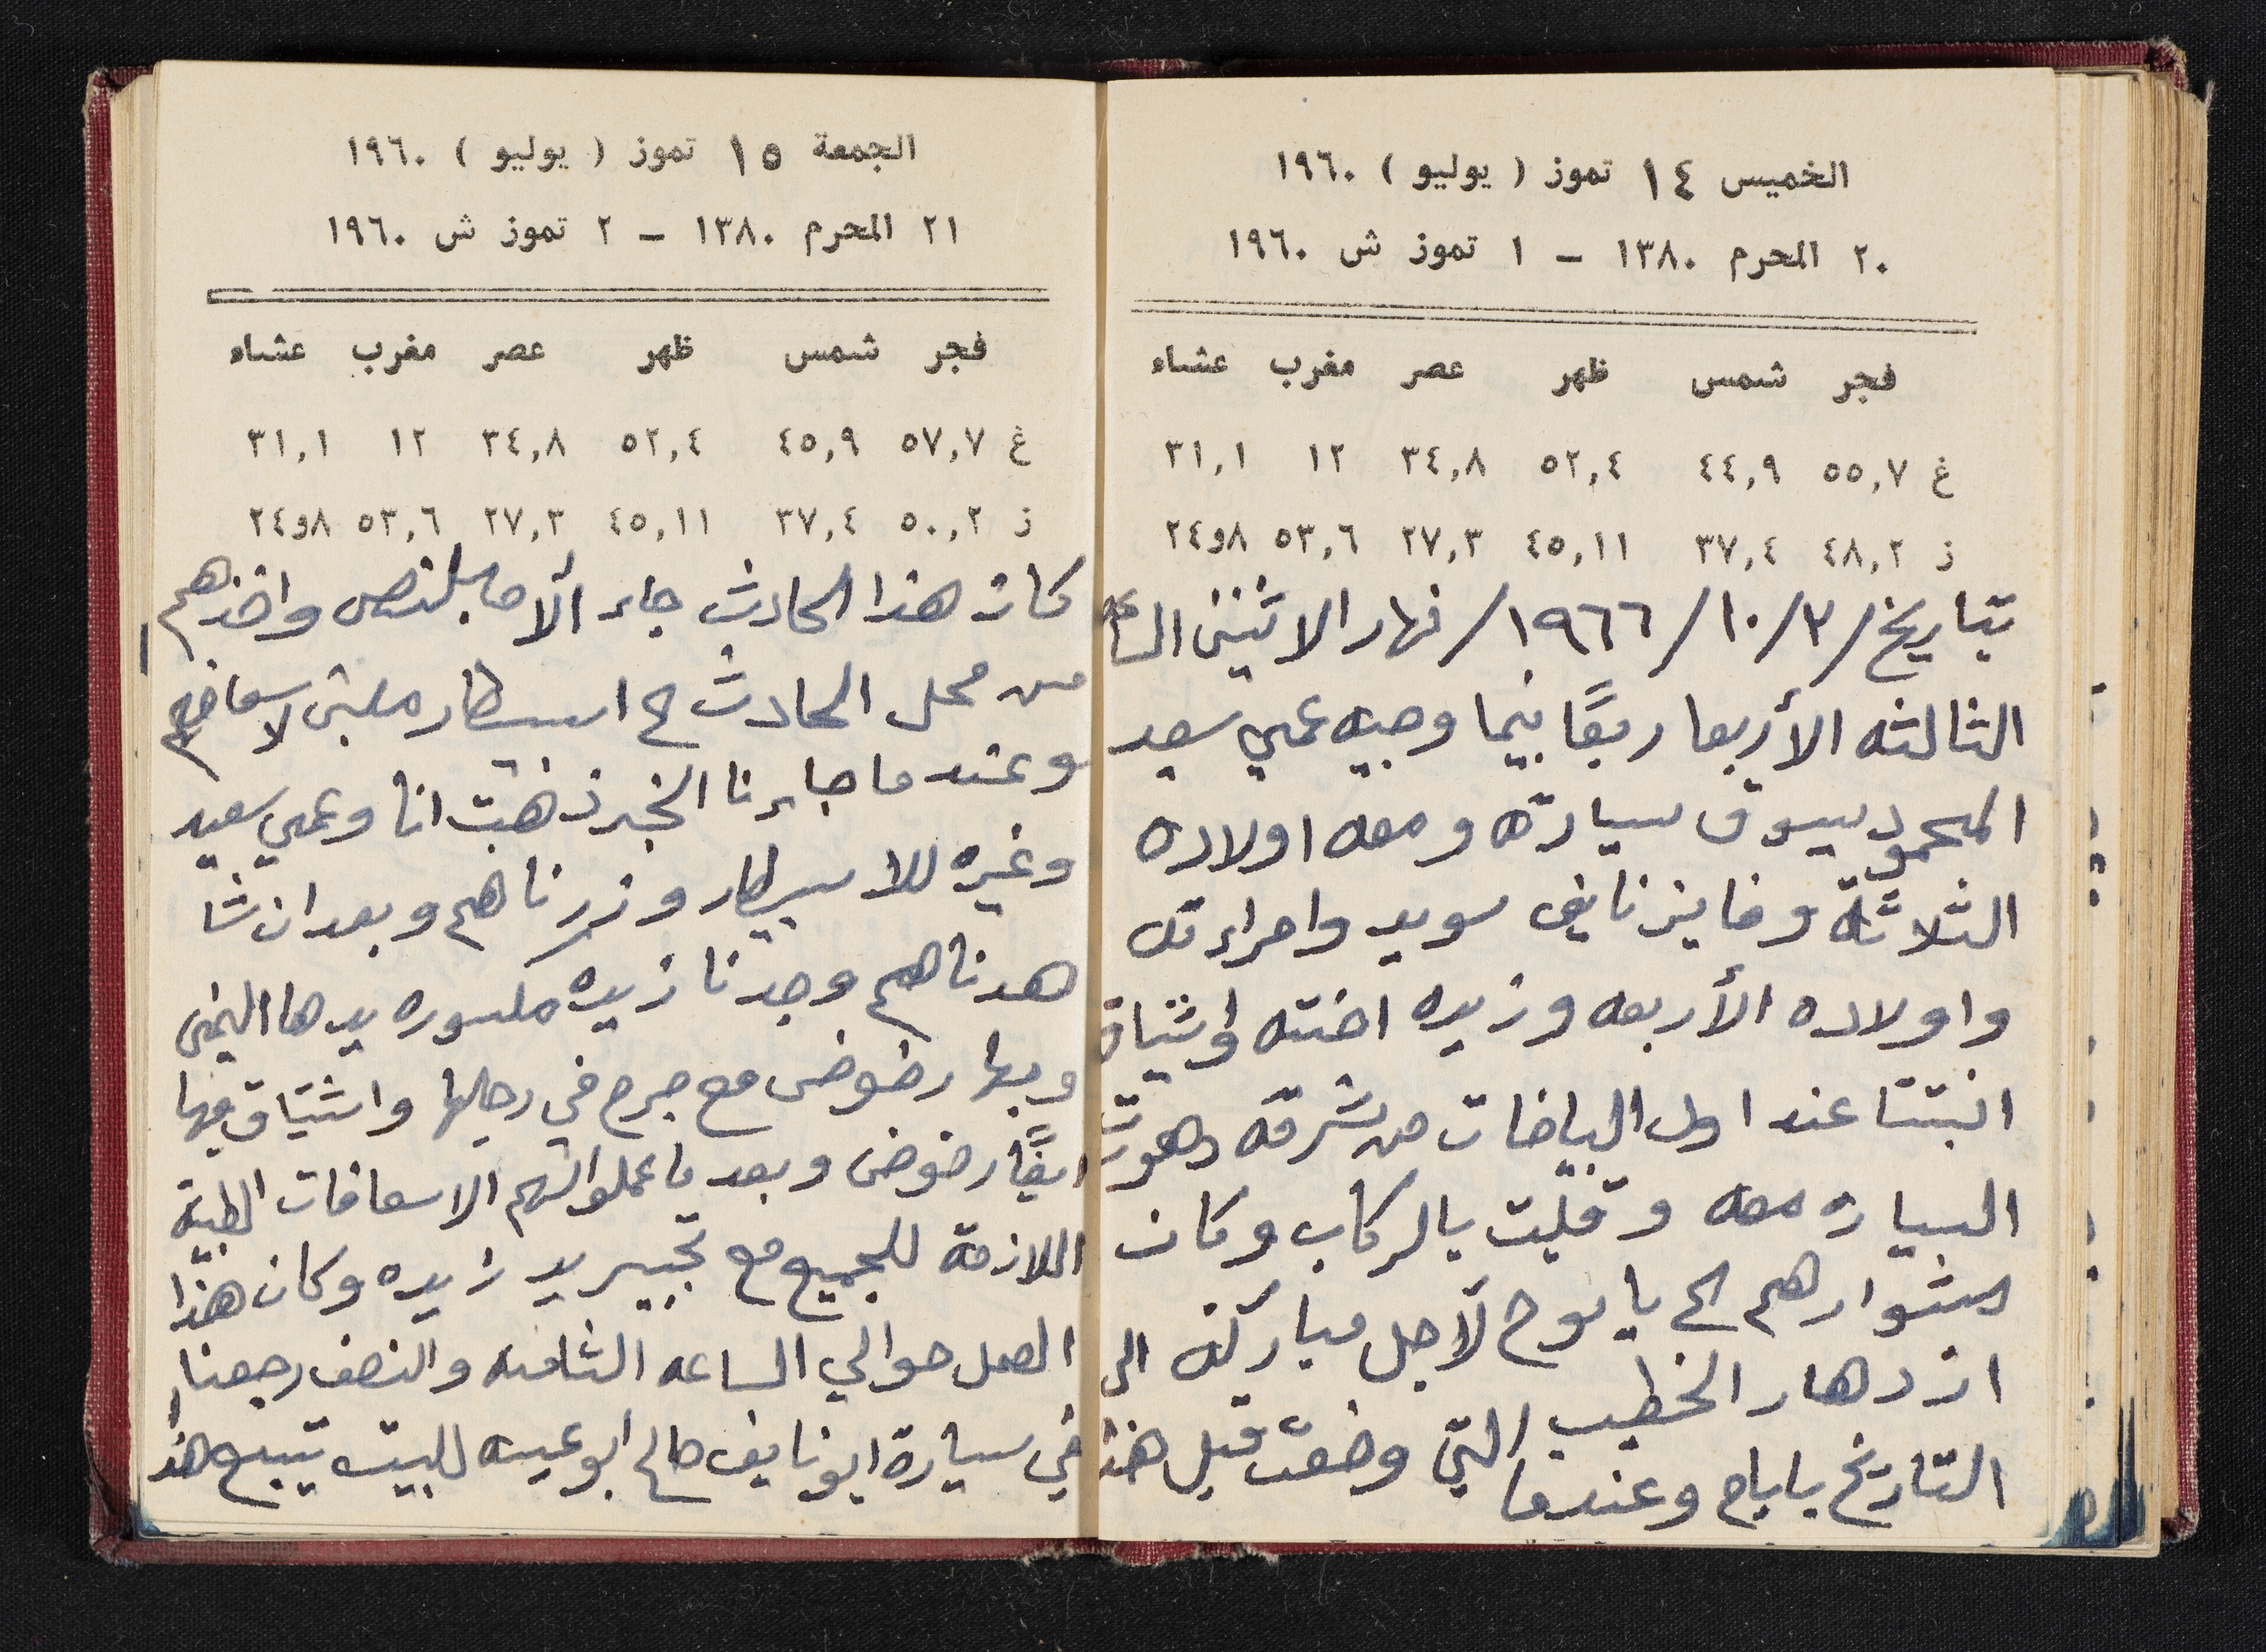 الخميس ١٤ تموز ( يوليو ) ١٩٦٠
٢٠ المحرم ١٣٨٠ - ١ تموز ش ١٩٦٠
فجر شمس ظهر عصر مغرب عشاء
غ ٥٥,٧ ٤٤,٩ ٥٢,٤ ٣٤,٨ ١٢ ٣١,١
ز ٤٨,٢ ٣٧,٤ ٤٥,١١ ٢٧,٣ ٥٣,٦ ٨و٢٤
بتاريخ / ٣/ ١٠/ ١٩٦٦/ نهار الاثنين الساعه
الثالثه الأربعا ربعًا بينما وجيه عمي سعيد
المحمود يسوق سيارته ومعه اولاده
الثلاثة وفايز نايف سويد وامراءته
واولاده الأربعه وزيده اخته واشتياق
انبتنا عند اول البياضات من شرقه دهورت
السياره معه وقلبت بالركاب وكان
مشوارهم الى يانوح لأجل مباركة الى
ازدهار الخطيب التي وضعت قبل هذا
التاريخ بايام وعندما
الجمعة ١٥ تموز ( يوليو ) ١٩٦٠
٢١ المحرم ١٣٨٠ - ٢ تموز ش ١٩٦٠
فجر شمس ظهر عصر مغرب عشاء
غ ٥٧,٧ ٤٥,٩ ٥٢,٤ ٣٤,٨ ١٢ ٣١,١
ز ٥٠,٢ ٣٧,٤ ٤٥,١١ ٢٧,٣ ٥٣,٦ ٨و٢٤
كان هذا الحادث جاء واخذهم
من محل الحادث الى اسبيطار لاسعافهم
وعندما جايرنا الخبر ذهبت انا وعمي سعيد
وغيره للاسبيطار وزرناهم وبعد ان شا
هدناهم وجدنا زيده مكسوره يدها اليمنى
وبها رضوض مع جرح في رجليها واشتياق بها
ايضًا رضوض وبعد ما عملوا لهم الاسعافات الطبية
اللازمة للجميع مع تجبير يد زايده وكان هذا
العمل حوالي الساعه الثامنه والنصف رجعنا
في سيارة ابو نايف صالح ابو عيسه للبيت يتبع هذا